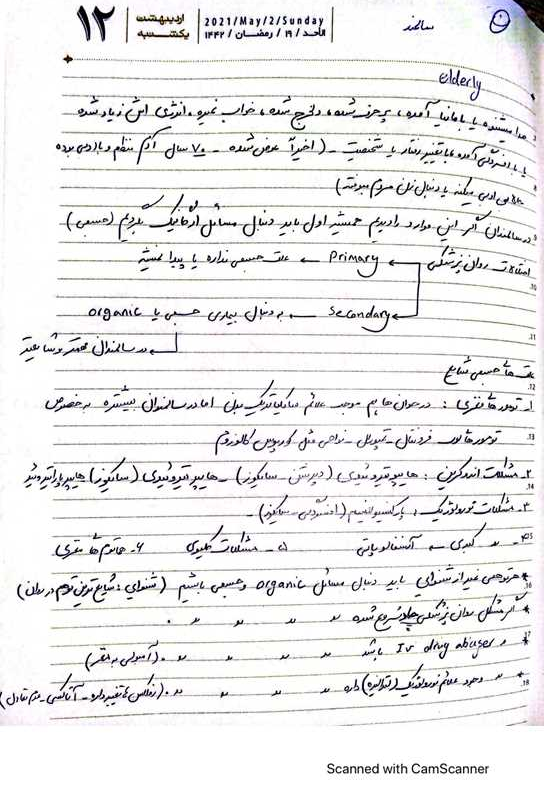 ۱۲ اردیبهشت یکشنبه
2021/May/2/Sunday
الأحد / ۱۹ / رمضان / ۱۴۴۲
سالمند
elderly
پرحرف شده، ولخرج شده، خواب نمیره، انرژی اش زیاد شده
یا با افسردگی آمده یا با تغییر رفتار یا شخصیت - (اخیراً عوض شده - ۷۰ سال آدم منظم و باادبی بوده
حالا بی ادبی میکنه یا دنبال زن مردم میوفته)
در سالمندان اگر این موارد را دیدیم همیشه اول باید دنبال مسائل ارگانیک بگردیم (جسمی)
اختلالات روان پزشکی
Primary ← علت جسمی نداره یا پیدا نمیشه
Secondary ← به دنبال بیماری جسمی یا organic
در سالمندان مهمتر و شایعتر
علت های جسمی شایع
۱- تومورهای مغزی : در جوان ها هم موجب علائم سایکیاتریک میشن اما در سالمندان بیشتره به خصوص
تومورهای لوب فرونتال - تمپورال - نواحی مثل کورپوس کالوزوم
۲- مشکلات اندوکرین : هایپوتیروئیدی (دپرشن - سایکوز) - هایپرتیروئیدی (سایکوز) هایپرپاراتیروئید
۳- مشکلات نورولوژیک : پارکینسونیسم (افسردگی - سایکوز) -
۴- کبدی ← آنسفالوپاتی ۵- مشکلات کلیوی ۶- هماتوم های مغزی
* هر توهمی غیر از شنوایی باید دنبال مسائل organic و جسمی باشیم (شنوایی : شایع ترین توهم در روان)
* اگر مشکل روان پزشکی حاد شروع شده 〃 〃 〃 〃 .
* 〃 IV drug abuser باشد 〃 〃 〃 〃 .
* 〃 وجود علائم نورولوژیک (لترالیزه) داره 〃 〃 〃 〃 . (رفلکس ها تغییر داره - آتاکسی - عدم تعادل)
Scanned with CamScanner